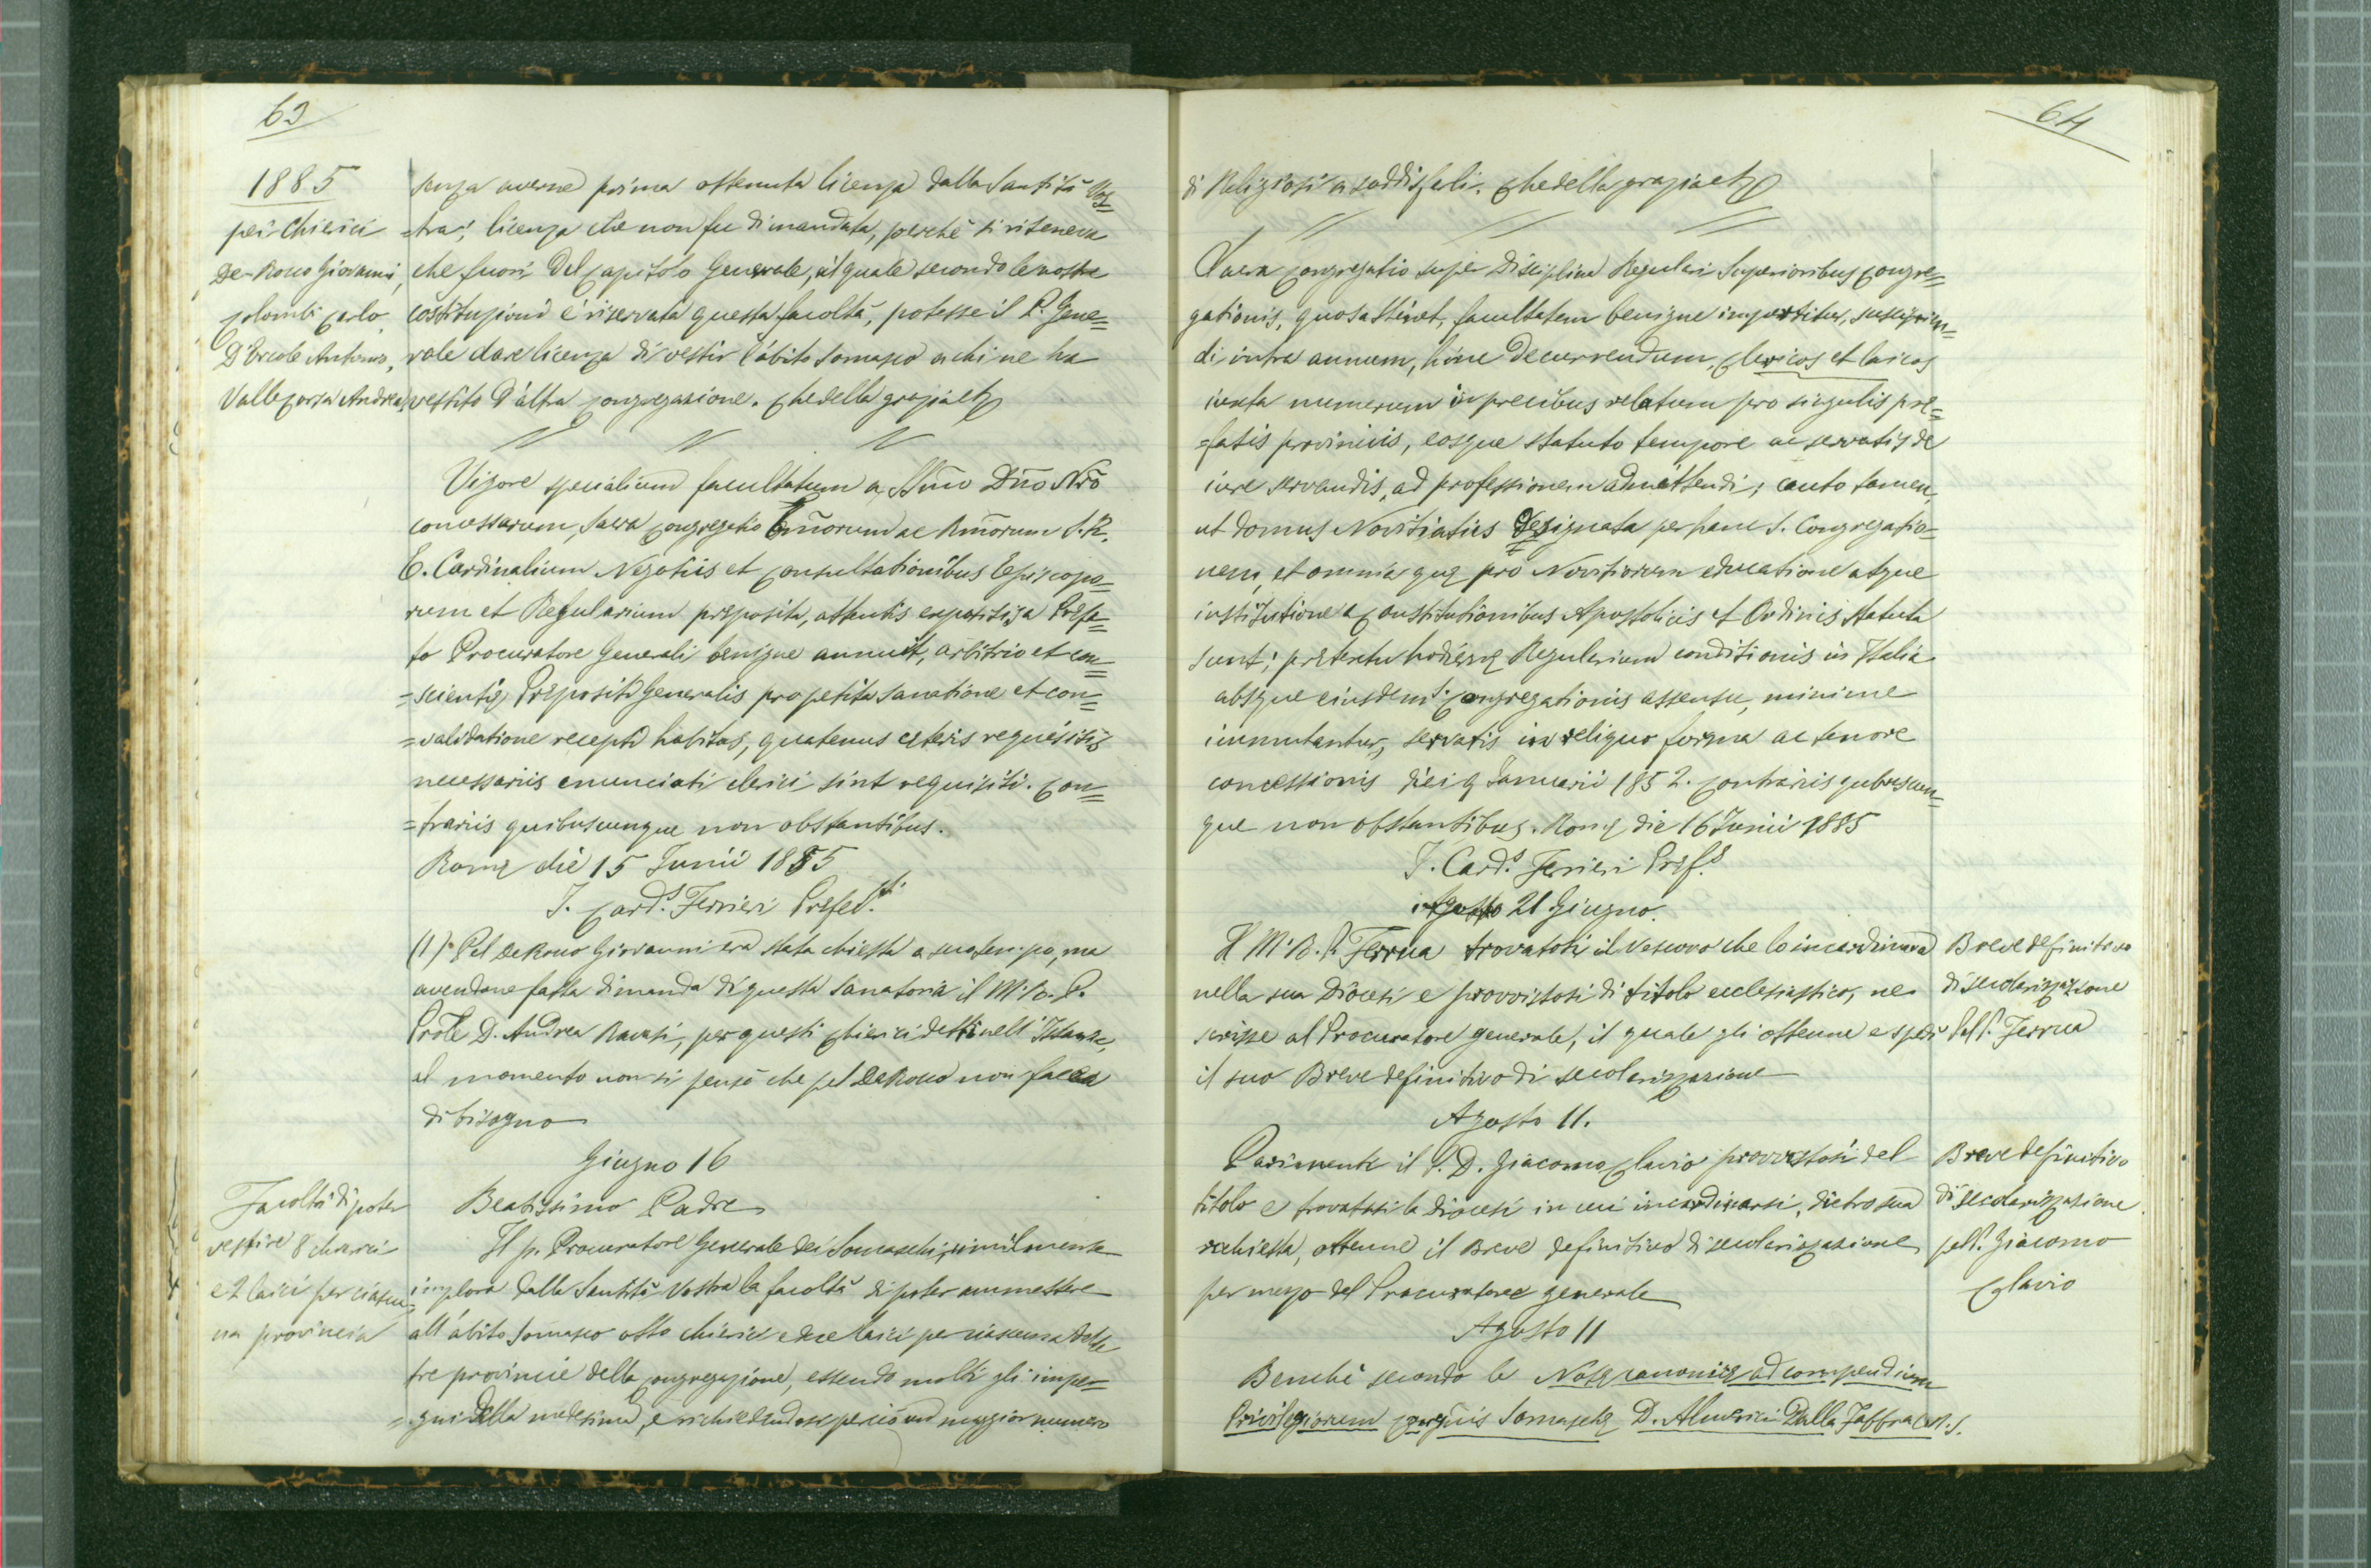 63
1885
pei Chierici
De-Rouo Giovanni,
Colombi Carlo,
D'Ercole Antonio,
Vallecorsa Andrea,
senza averne prima ottenuta licenza dalla Santità Vos=
=tra; licenza che non fu dimandata, perchè si riteneva
che fuori del Capitolo Generale, al quale secondo le nostre
costituzioni è riservata questa facoltà, potesse il P. Gene=
rale dare licenza di vestir l'abito Somasco a chi ne ha
vestito d'altra Congregazione. Che della grazia etc
Vigore specialium facultatum a SSmo Dño Nrõ
concessarum, Sacra Congregatio Emõrum ac Rmõrum S. R.
E. Cardinalium Negotiis et Consultationibus Episcopo=
rum et Regularium preposita, attentis expositis a Prefa=
to Procuratore Generali benigne annuit, arbitrio et con=
=scientię Prępositi Generalis pro petita sanatione et con=
=validatione recepti habitus, quatenus ceteris requisitis
necessariis enunciati clerici sint requisiti. Con=
=trariis quibuscumque non obstantibus.
Romę die 15 Junii 1885
I. Card. Ferrieri Prefect.
(1) Pel DeRouo Giovanni era stata chiesta a suo tempo, ma
avendone fatta dimanda di questa Sanatoria il M. R. P.
Prõle D. Andrea Ravasi, per questi chierici detti nell'Istanza,
al momento non si pensò che pel DeRouo non facea
di bisogno
Giugno 16
Facoltà di poter
vestire 8 chierici
e 2 laici per ciascu=
na provincia
Beatissimo Padre
Il p. Procuratore Generale dei Somaschi, similmente
implora dalla Santità Vostra la facoltà di poter ammettere
all'abito Somasco otto chierici e due laici per ciascuna delle
tre provincie della Congregazione, essendo molti gli impe=
=gni della medesima, e richiedendosi perciò un maggior numero
64
di Religiosi a soddisfarli. Che della grazia etc
Sacra Congregatio super Disciplina Regulari Superioribus Congre=
gationis, quos attinet, facultatem benigne impertitur, suscipien=
di intra annum, hinc decurrendum, clericos et laicos
iuxta numerum in precibus relatum pro singulis pre=
=fatis provinciis, eosque statuto tempore ac servatis de
iure servandis, ad professionem admittendi; cauto tamen,
ut domus Novitiatus designata per hanc S. Congregatio=
nem, et omnia quę pro Novitiorum educatione atque
institutione a Constitutionibus Apostolicis et Ordinis statuta
sunt; prętextu hodiernę Regularium conditionis in Italia
absque eiusdem S. Congregationis assensu, minime
immutantur, servatis in reliquo forma ac tenore
concessionis diei 9 Januarii 1852. Contrariis quibuscum=
que non obstantibus. Romę die 16 Junii 1885
I. Card. Ferrieri Pref.
Agosto 21 Giugno.
Il M. R. P. Ferrua trovatosi il Vescovo che lo incardinava
nella sua Diocesi e provvistosi di titolo ecclesiastico, ne
scrisse al Procuratore generale, il quale gli ottenne e spedì
il suo Breve definitivo di secolarizzazione
Breve definitivo
di secolarizzazione
pel P. Ferrua
Agosto 11.
Parimente il P. D. Giacomo Clavio provvistosi del
titolo e trovatasi la Diocesi in cui incardinarsi, dietro sua
richiesta, ottenne il Breve definitivo di secolarizzazione
per mezzo del Procuratore generale
Breve definitivo
di secolarizzazione
pel P. Giacomo
Clavio
Agosto 11
Benchè secondo le Notę canonicę ad compendium
Privilegiorum Congnis Somaschę D. Almerici Dalla Zaffra C.R.S.